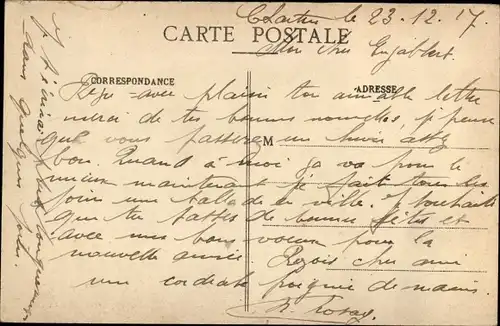 Chartres le 23.12.17
CARTE POSTALE
Mon cher
CORRESPONDANCE
ADRESSE
Reçu avec plaisir ton aimable lettre
merci de tes bonnes nouvelles, je pense
que vous passerez un hiver assez
M
bon. Quand à moi ça va pour le
mieux maintenant je fait tous les
jours une ballade en ville. Je souhaite
que tu passes de bonnes fêtes et
avec mes bons voeux pour la
nouvelle année. Reçois cher ami
une cordiale poignée de mains.
J'écrirai plus longuement
dans quelques jours.